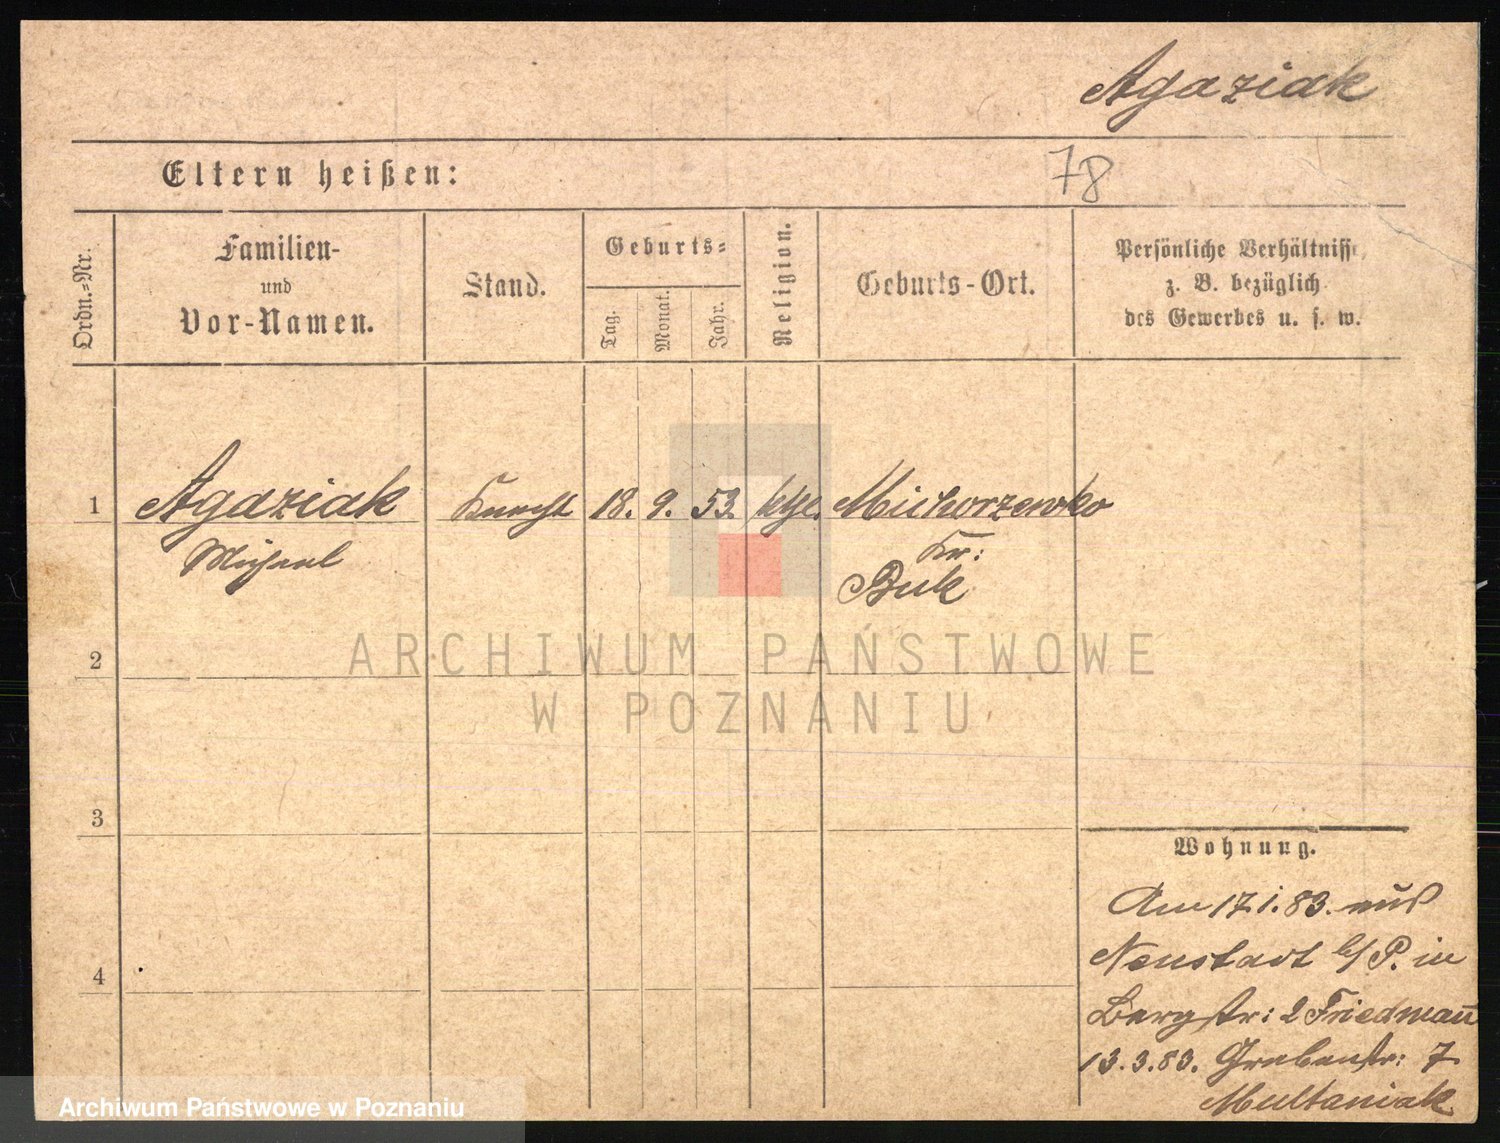 Agaziak
78
Eltern heißen:
Ordn.-Nr.
Familien-
und
Vor-Namen.
Stand.
Geburts-
Tag.
Monat.
Jahr.
Religion.
Geburts-Ort.
Persönliche Verhältnisse,
z. B. bezüglich
des Gewerbes u. s. w.
1
Agaziak
Michael
Knecht
18.
9.
53.
kth.
Michorzewko
Kr:
Buk
2
3
4
Wohnung.
Am 17.1.83. aus
Neustadt b/P. in
Bergstr: 2 Friedmañ
13.3.83. Grabenstr: 7
Multaniak
ARCHIWUM PAŃSTWOWE
W POZNANIU
Archiwum Państwowe w Poznaniu